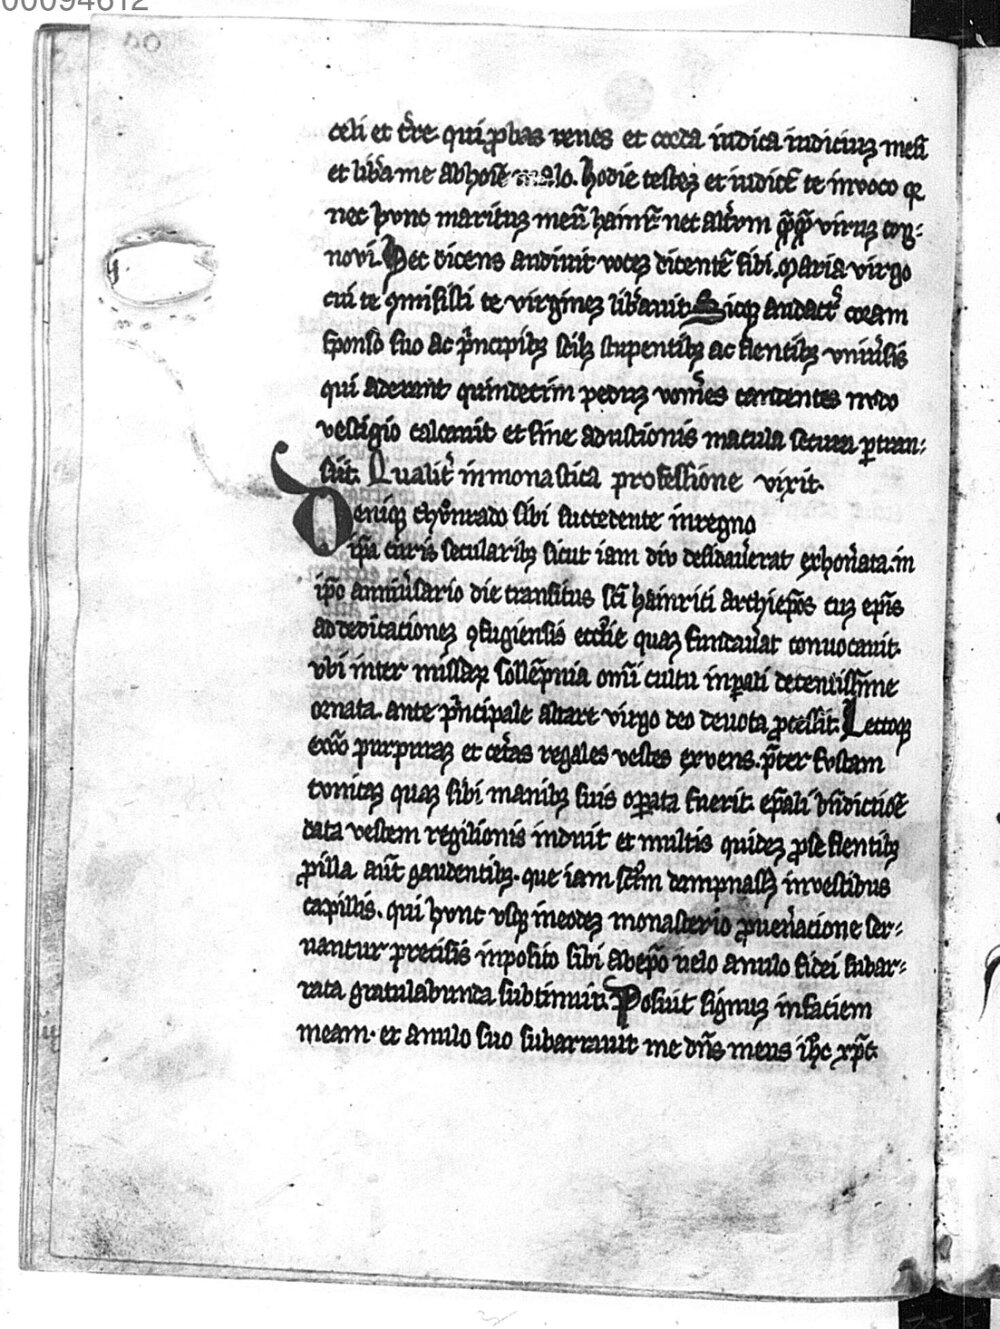 00094612
celi et t̄re qui ꝓbas renes et corda iudica iudiciuꝫ meū
et lib̄a me ab hoīe malo. hodie testeꝫ et iudicē te inuoco qꝛ
nec hunc marituꝫ meū hainr̄ nec alt̄um viruꝫ cog-
noui. Hec dicens audiuit voceꝫ dicentē sibi. Maria virgo
cui te ꝯmisisti te virgineꝫ lib̄auit. Sicqꝫ audact̄ coram
sponso suo ac p̄ncipibꝫ stupentibꝫ ac flentibꝫ vniūsis
qui aderant quindecim peduꝫ vom̄es candentes nudo
vestigio calcauit et sine adustionis macula secura ꝑtran-
siit. Qualit̄ in monastica professione vixit.
Deniqꝫ chūnrado sibi succedente in regno
ip̄a curis secularibꝫ sicut iam diu desidaūerat exhon̄ata. in
ip̄o anniūsario die transitus sc̄i hainrici archiep̄os cuꝫ ep̄is
ad dedicacioneꝫ ꝯfugiensis eccl̄ie quaꝫ fundaūat conuocauit.
vbi inter missaꝝ sollēpnia om̄i cultu inꝑali decentissime
ornata. ante p̄ncipale altare virgo deo deuota ꝓcessit. Lectoqꝫ
ew̄o purpuraꝫ et cet̄as regales vestes exuens. p̄ter fuscam
tunicaꝫ quaꝫ sibi manibꝫ suis oꝑata fuerit. ep̄ali bn̄dictiōe
data vestem religionis induit et multis quideꝫ ꝓ se flentibꝫ
ꝓ illa aūt gaudentibꝫ. que iam in vestibus
capillis. qui hunc vsqꝫ in eodeꝫ monasterio ꝓ uen̄acione ser-
uantur precisis inposito sibi ab ep̄o uelo anulo fidei subar-
rata gratulabunda subtinuit. Posuit signuꝫ in faciem
meam. et anulo suo subarrauit me dn̄s meus ih̄c xp̄c